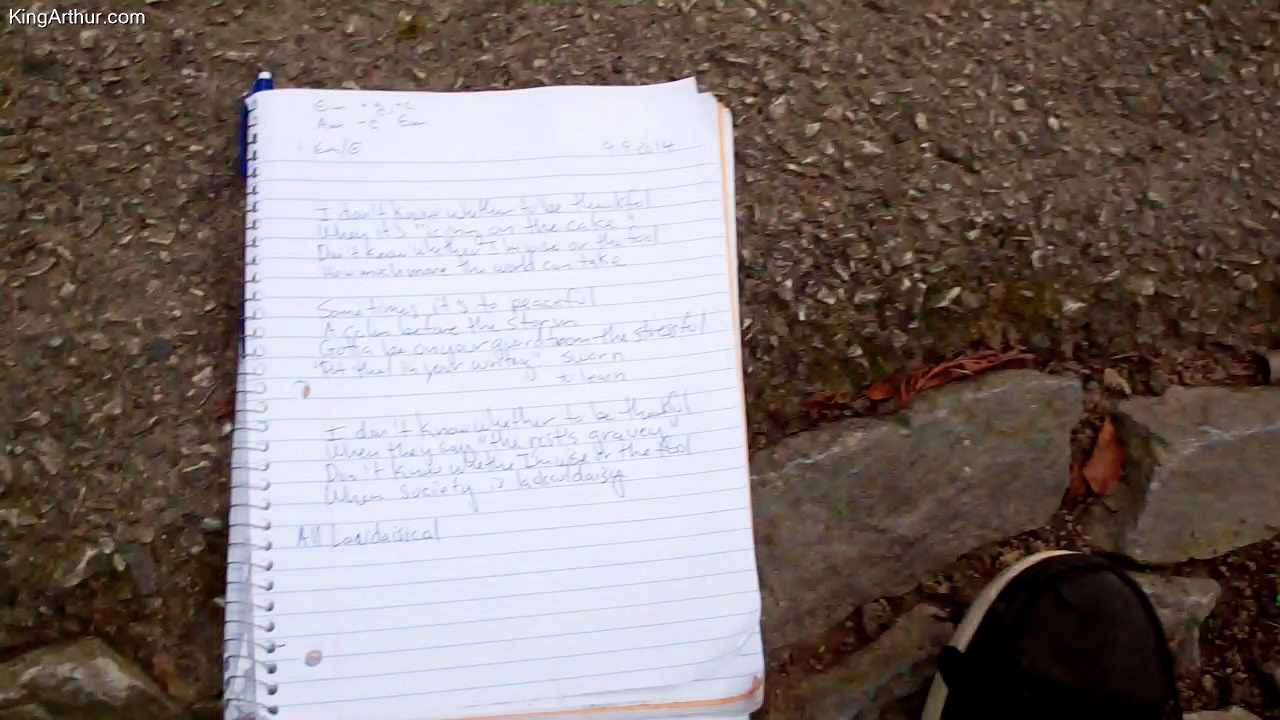 KingArthur.com
Em - g, +c
Am - c Em
Em/E
9 9 2014
I don't know whether to be thankful
When it's "icing on the cake"
Don't know whether I'm wise or the fool
How much more the world can take
Sometimes it's to peaceful
A calm before the storm
Gotta be on your guard from the stressful
"Put that in your writing" sworn
to learn
I don't know whether to be thankful
When they say "the rest's gravey"
Don't know whethe I'm wise or the fool
When society is lackadaisy
All